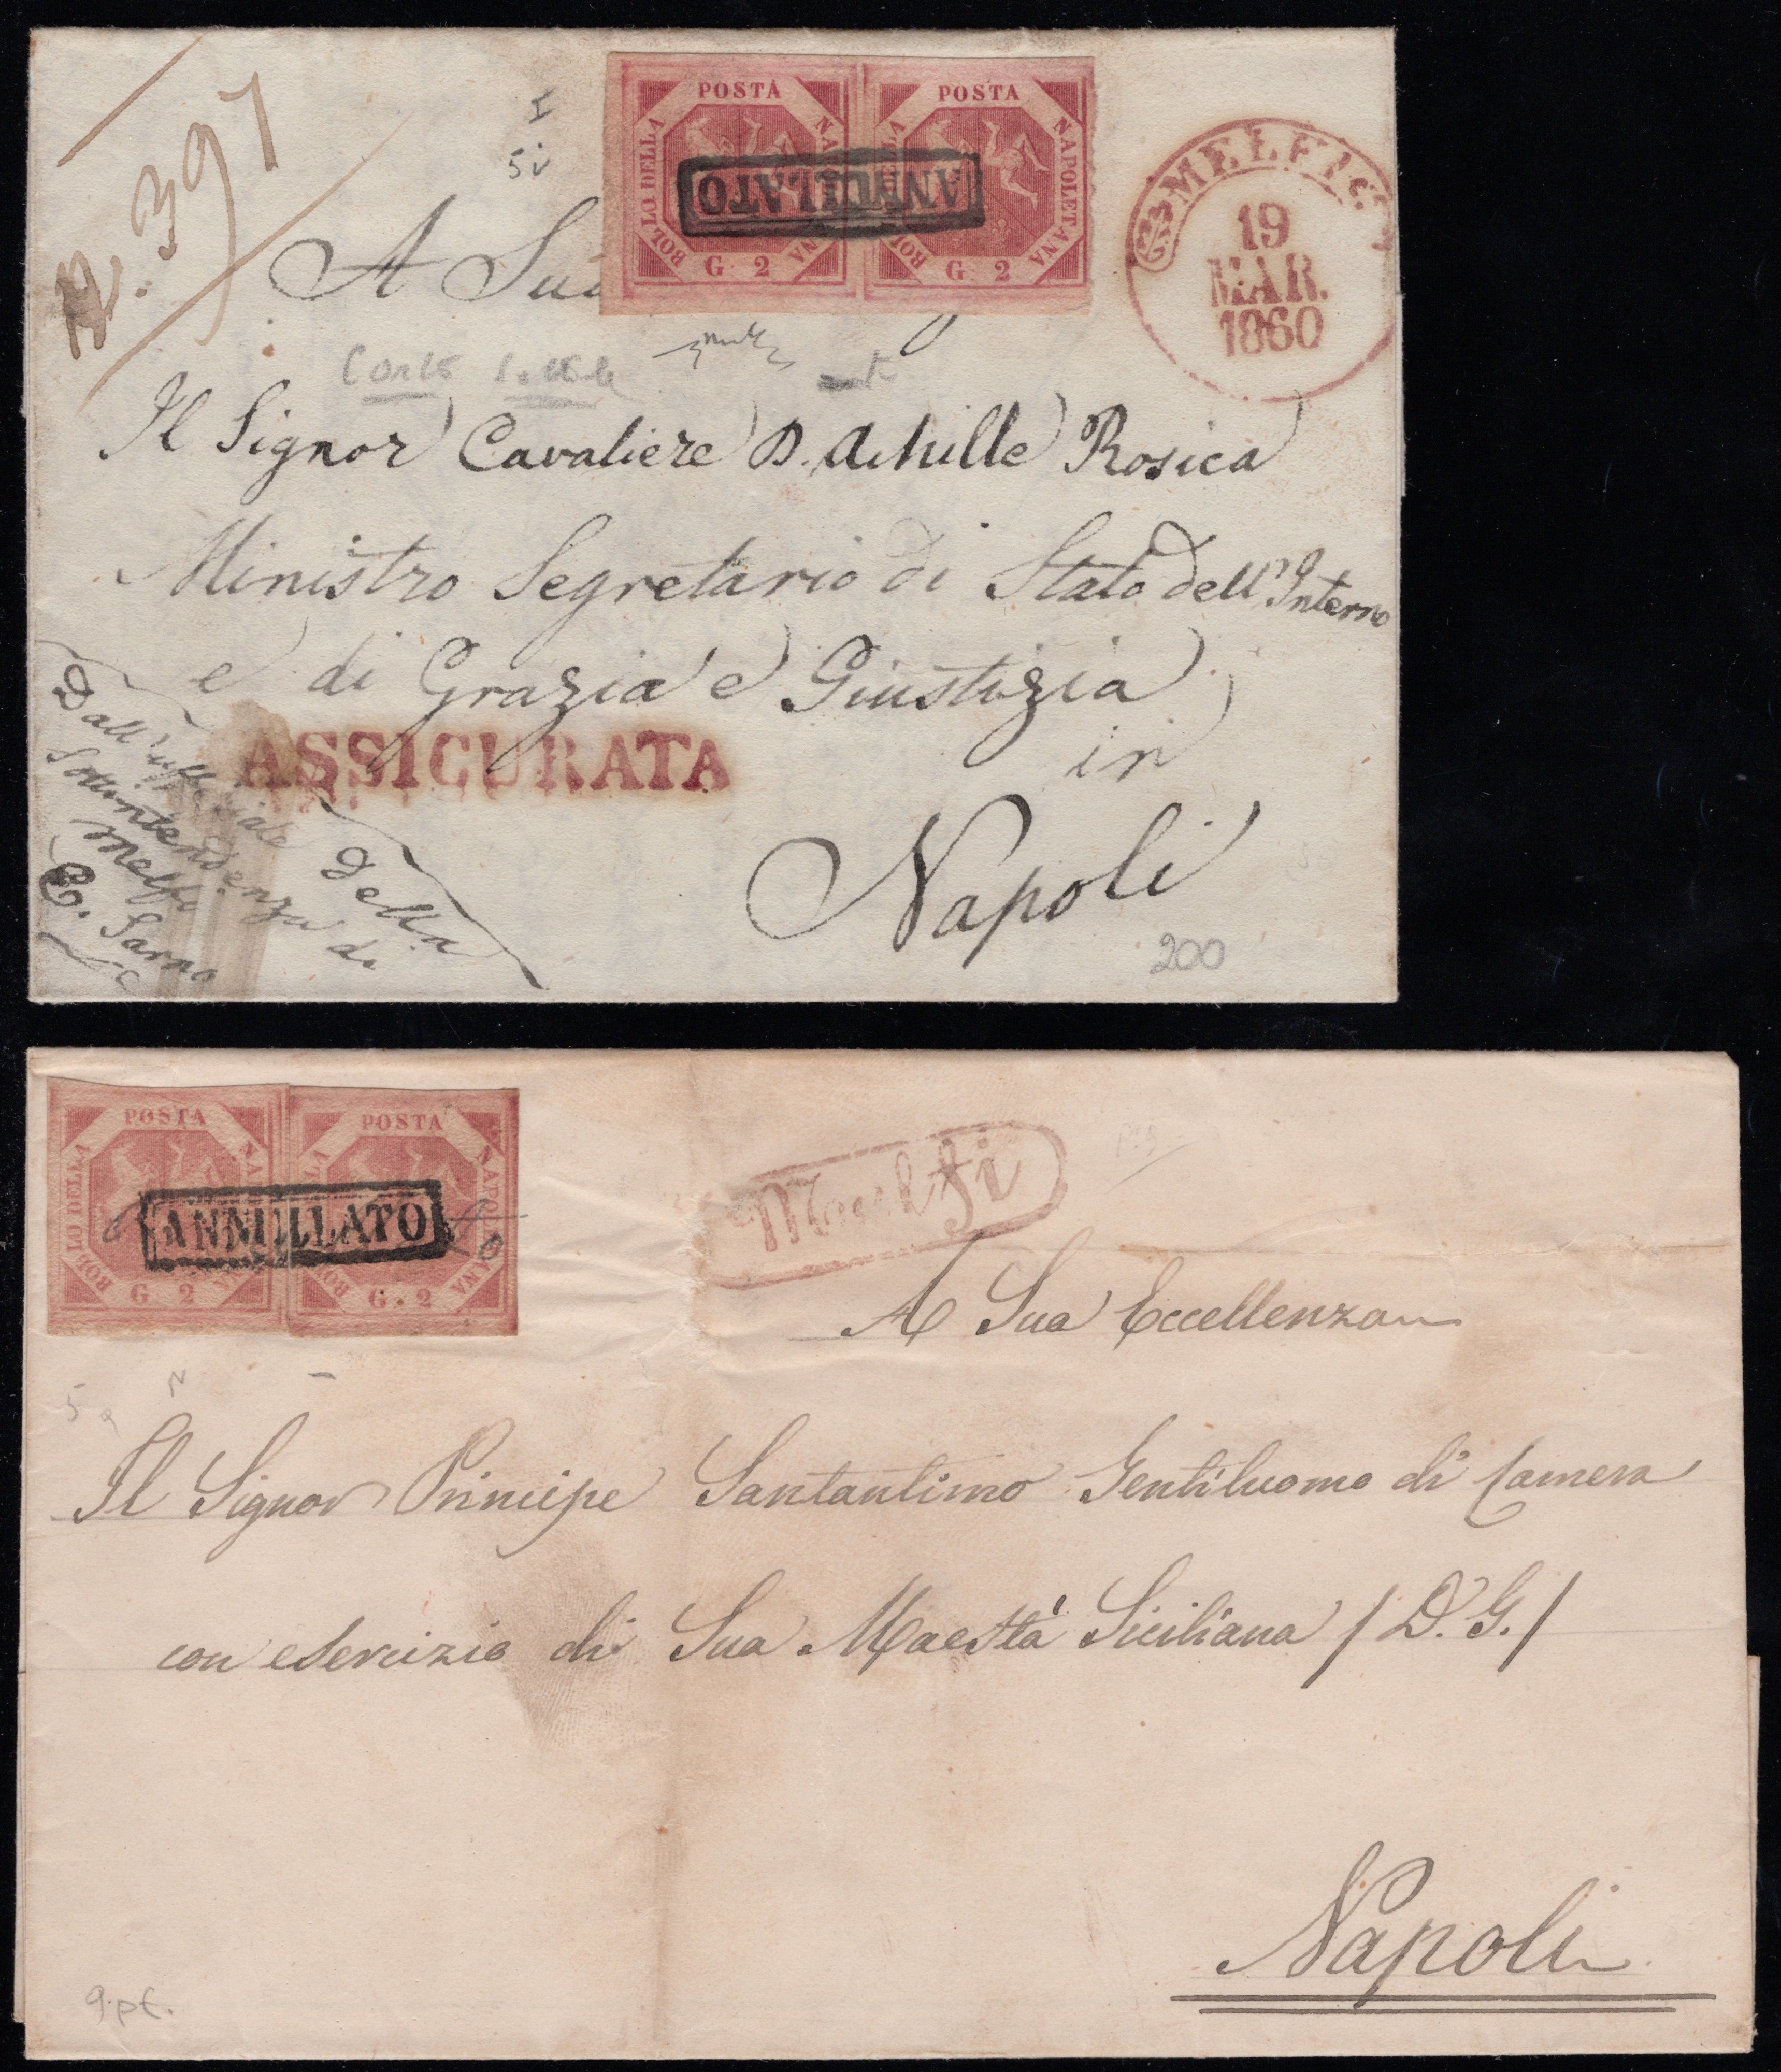 N. 397
I
5i
POSTA
BOLLO DELLA
G. 2
POSTA
NAPOLETANA
BOL
G. 2
ANNULLATO
MELFI
19
MAR.
1860
A Sua
Il Signor Cavaliere D. Achille Rosica
Ministro Segretario di Stato dell'Interno
e di Grazia e Giustizia
in
Napoli
ASSICURATA
Dall'uffiziale della
Sottintendenza di
Melfi
C. Sarno
200
POSTA
BOLLO DELLA
G. 2
POSTA
NAPOLETANA
G. 2
ANNULLATO
Melfi
A Sua Eccellenza
5
N
Il Signor Principe Santantimo Gentiluomo di Camera
con esercizio di Sua Maestà Siciliana / D. G. /
Napoli
9.pt.